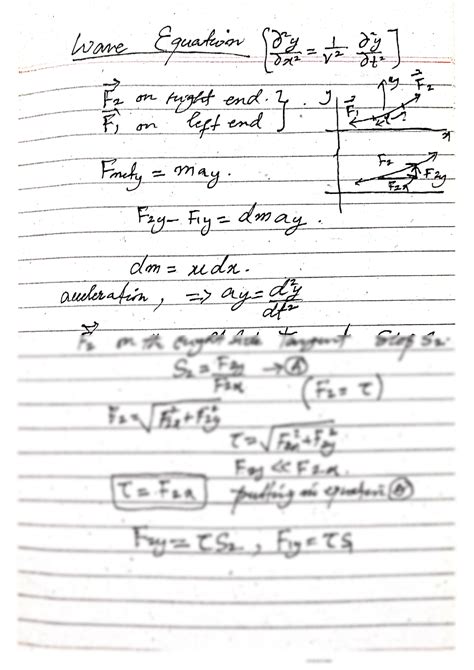 Wave Equation [∂²y/∂x² = 1/v² ∂²y/∂t²]
F⃗₂ on right end. }
F⃗₁ on left end }
y F⃗₁ y F⃗₂ x
Fnety = may.
F₂ F₂y F₂x
F₂y − F₁y = dmay.
dm = μdx.
acceleration, ⇒ ay = d²y/dt²
F⃗₂ on the right side Tangent Slop S₂.
S₂ = F₂y/F₂x → (A)
(F₂ = τ)
F₂ = √F₂x² + F₂y²
τ = √F₂x² + F₂y²
F₂y << F₂x.
τ = F₂x putting in equation (A)
F₂y = τS₂, F₁y = τS₁